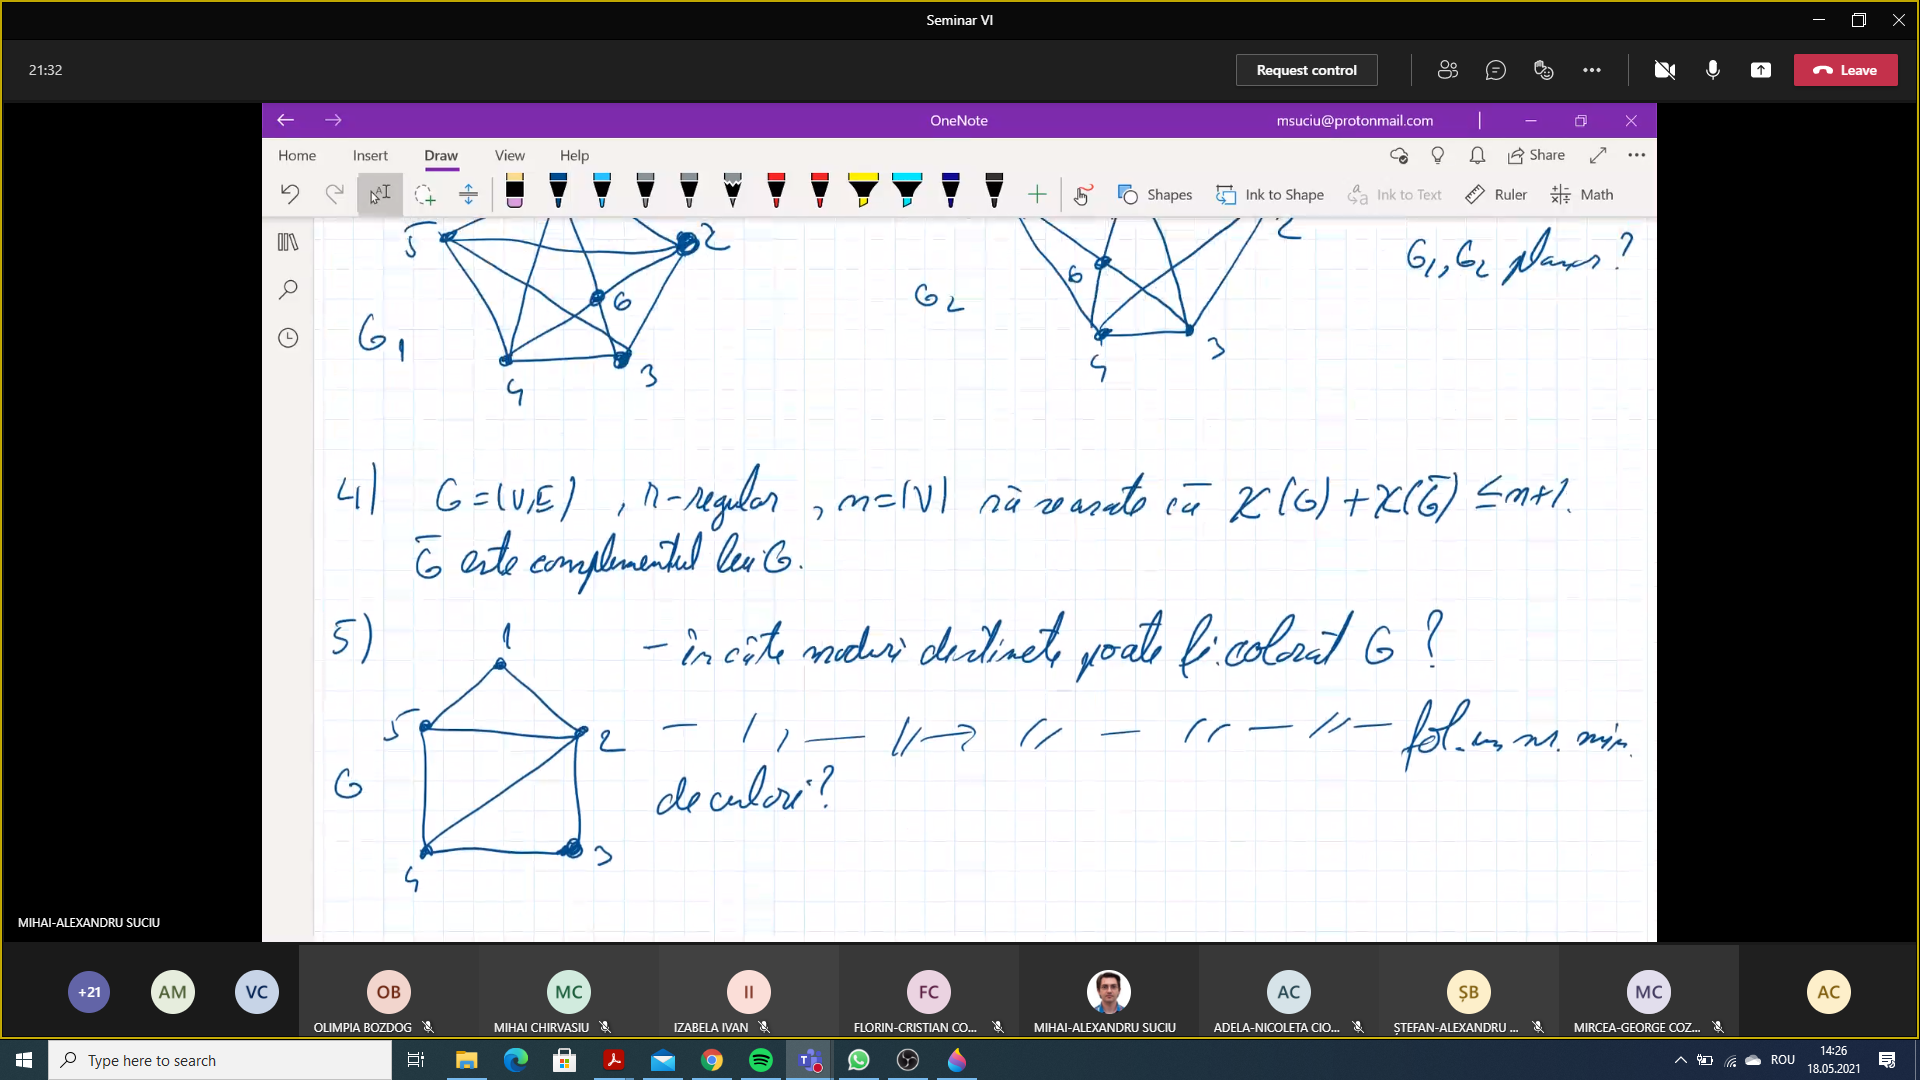 Seminar VI
21:32
Request control
Leave
OneNote
msuciu@protonmail.com
Home Insert Draw View Help
Share
Shapes Ink to Shape Ink to Text Ruler Math
5 2 6 G1 4 3
G2 6 2 4 3
G1, G2 planar?
4) G=(V,E), r-regular, n=|V| să se arate că χ(G)+χ(G̅) ≤ n+1.
G̅ este complementul lui G.
5) 1 5 2 G 4 3
- în câte moduri distincte poate fi colorat G?
fol. un nr. min.
de culori?
MIHAI-ALEXANDRU SUCIU
+21 AM VC OB MC II FC AC ȘB MC AC
OLIMPIA BOZDOG MIHAI CHIRVASIU IZABELA IVAN FLORIN-CRISTIAN CO... MIHAI-ALEXANDRU SUCIU ADELA-NICOLETA CIO... ȘTEFAN-ALEXANDRU ... MIRCEA-GEORGE COZ...
Type here to search
ROU
14:26
18.05.2021